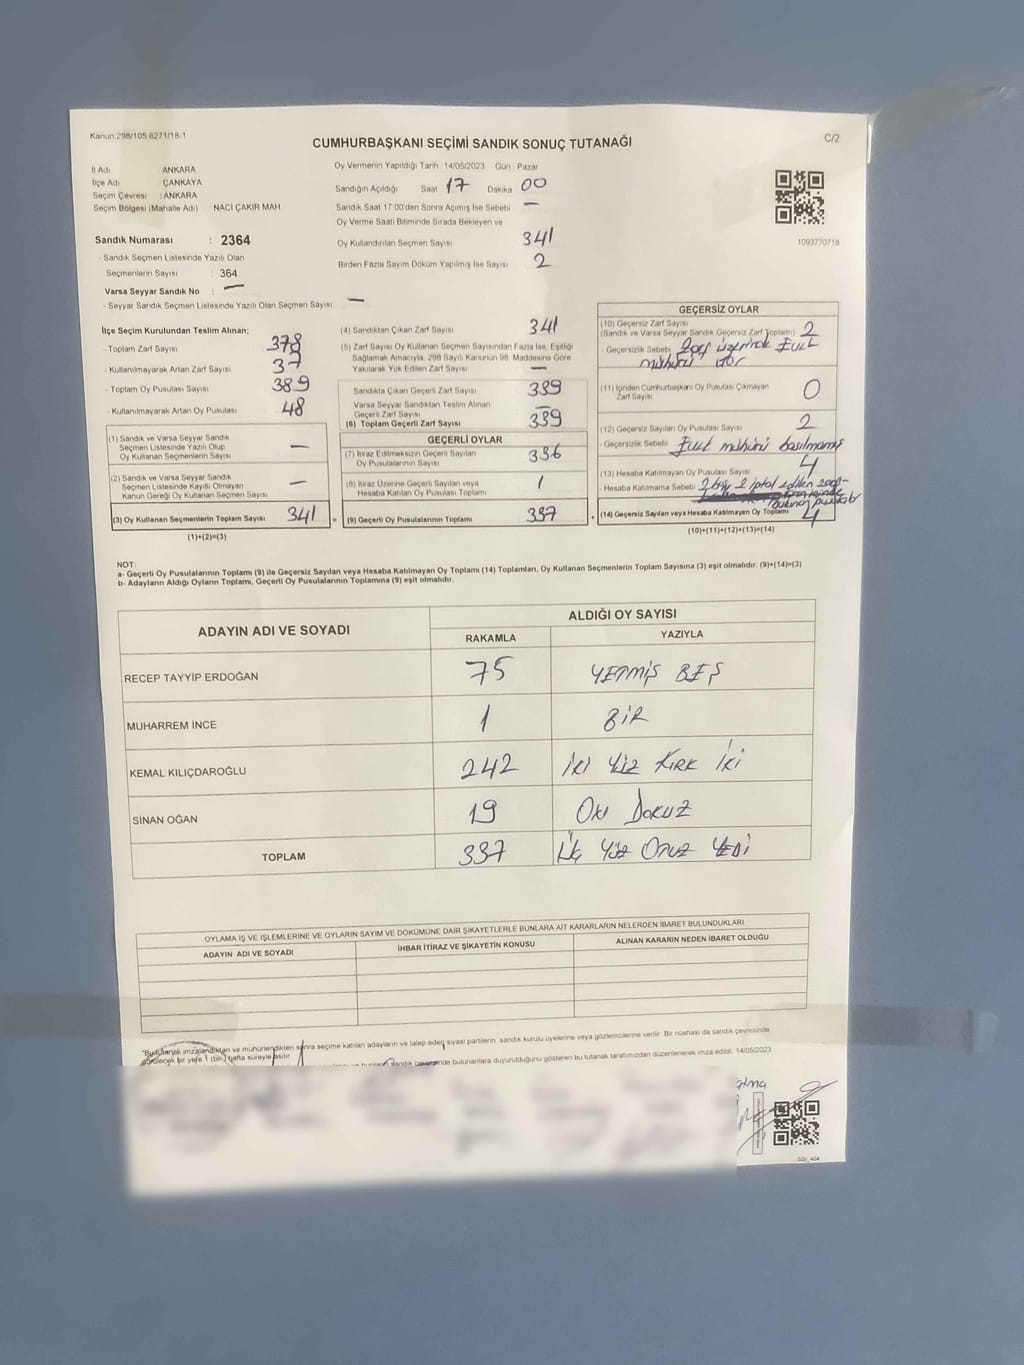 Kanun 298/105,6271/18-1
CUMHURBAŞKANI SEÇİMİ SANDIK SONUÇ TUTANAĞI
C/2
İl Adı ANKARA
İlçe Adı ÇANKAYA
Seçim Çevresi : ANKARA
Seçim Bölgesi (Mahalle Adı) NACİ ÇAKIR MAH
Sandık Numarası : 2364
- Sandık Seçmen Listesinde Yazılı Olan
Seçmenlerin Sayısı : 364
Varsa Seyyar Sandık No : —
- Seyyar Sandık Seçmen Listesinde Yazılı Olan Seçmen Sayısı —
Oy Vermenin Yapıldığı Tarih 14/05/2023 Gün : Pazar
Sandığın Açıldığı Saat 17 Dakika 00
Sandık Saat 17.00'den Sonra Açılmış İse Sebebi —
Oy Verme Saati Bitiminde Sırada Bekleyen ve
Oy Kullandırılan Seçmen Sayısı 341
Birden Fazla Sayım Döküm Yapılmış İse Sayısı 2
1093770718
İlçe Seçim Kurulundan Teslim Alınan;
- Toplam Zarf Sayısı 378
- Kullanılmayarak Artan Zarf Sayısı 37
- Toplam Oy Pusulası Sayısı 389
- Kullanılmayarak Artan Oy Pusulası 48
(1) Sandık ve Varsa Seyyar Sandık
Seçmen Listesinde Yazılı Olup
Oy Kullanan Seçmenlerin Sayısı —
(2) Sandık ve Varsa Seyyar Sandık
Seçmen Listesinde Kayıtlı Olmayan
Kanun Gereği Oy Kullanan Seçmen Sayısı —
(3) Oy Kullanan Seçmenlerin Toplam Sayısı 341
(1)+(2)=(3)
(4) Sandıktan Çıkan Zarf Sayısı 341
(5) Zarf Sayısı Oy Kullanan Seçmen Sayısından Fazla İse, Eşitliği
Sağlamak Amacıyla, 298 Sayılı Kanunun 98. Maddesine Göre
Yakılarak Yok Edilen Zarf Sayısı —
Sandıkta Çıkan Geçerli Zarf Sayısı 339
Varsa Seyyar Sandıktan Teslim Alınan
Geçerli Zarf Sayısı —
(6) Toplam Geçerli Zarf Sayısı 339
GEÇERLİ OYLAR
(7) İtiraz Edilmeksizin Geçerli Sayılan
Oy Pusulalarının Sayısı 336
(8) İtiraz Üzerine Geçerli Sayılan veya
Hesaba Katılan Oy Pusulası Toplamı 1
= (9) Geçerli Oy Pusulalarının Toplamı 337 +
GEÇERSİZ OYLAR
(10) Geçersiz Zarf Sayısı
(Sandık ve Varsa Seyyar Sandık Geçersiz Zarf Toplamı) 2
- Geçersizlik Sebebi Zarf üzerinde Evet
mühürü var
(11) İçinden Cumhurbaşkanı Oy Pusulası Çıkmayan
Zarf Sayısı 0
(12) Geçersiz Sayılan Oy Pusulası Sayısı 2
- Geçersizlik Sebebi Evet mühürü basılmamış
(13) Hesaba Katılmayan Oy Pusulası Sayısı 4
- Hesaba Katılmama Sebebi iptal edilen
(14) Geçersiz Sayılan veya Hesaba Katılmayan Oy Toplamı 4
(10)+(11)+(12)+(13)=(14)
NOT:
a- Geçerli Oy Pusulalarının Toplamı (9) ile Geçersiz Sayılan veya Hesaba Katılmayan Oy Toplamı (14) Toplamları, Oy Kullanan Seçmenlerin Toplam Sayısına (3) eşit olmalıdır. (9)+(14)=(3)
b- Adayların Aldığı Oyların Toplamı, Geçerli Oy Pusulalarının Toplamına (9) eşit olmalıdır.
ADAYIN ADI VE SOYADI
ALDIĞI OY SAYISI
RAKAMLA YAZIYLA
RECEP TAYYİP ERDOĞAN 75 YETMİŞ BEŞ
MUHARREM İNCE 1 BİR
KEMAL KILIÇDAROĞLU 242 İKİ YÜZ KIRK İKİ
SİNAN OĞAN 19 ON DOKUZ
TOPLAM 337 ÜÇ YÜZ OTUZ YEDİ
OYLAMA İŞ VE İŞLEMLERİNE VE OYLARIN SAYIM VE DÖKÜMÜNE DAİR ŞİKAYETLERLE BUNLARA AİT KARARLARIN NELERDEN İBARET BULUNDUKLARI
ADAYIN ADI VE SOYADI İHBAR İTİRAZ VE ŞİKAYETİN KONUSU ALINAN KARARIN NEDEN İBARET OLDUĞU
*Bu tutanak imzalandıktan ve mühürlendikten sonra seçime katılan adayların ve talep eden siyasi partilerin sandık kurulu üyelerine veya gözlemcilerine verilir. Bir nüshası da sandık çevresinde
görülecek bir yere 1 (bir) hafta süreyle asılır.
sandık çevresinde bulunanlara duyurulduğunu gösteren bu tutanak tarafımızdan düzenlenerek imza edildi. 14/05/2023